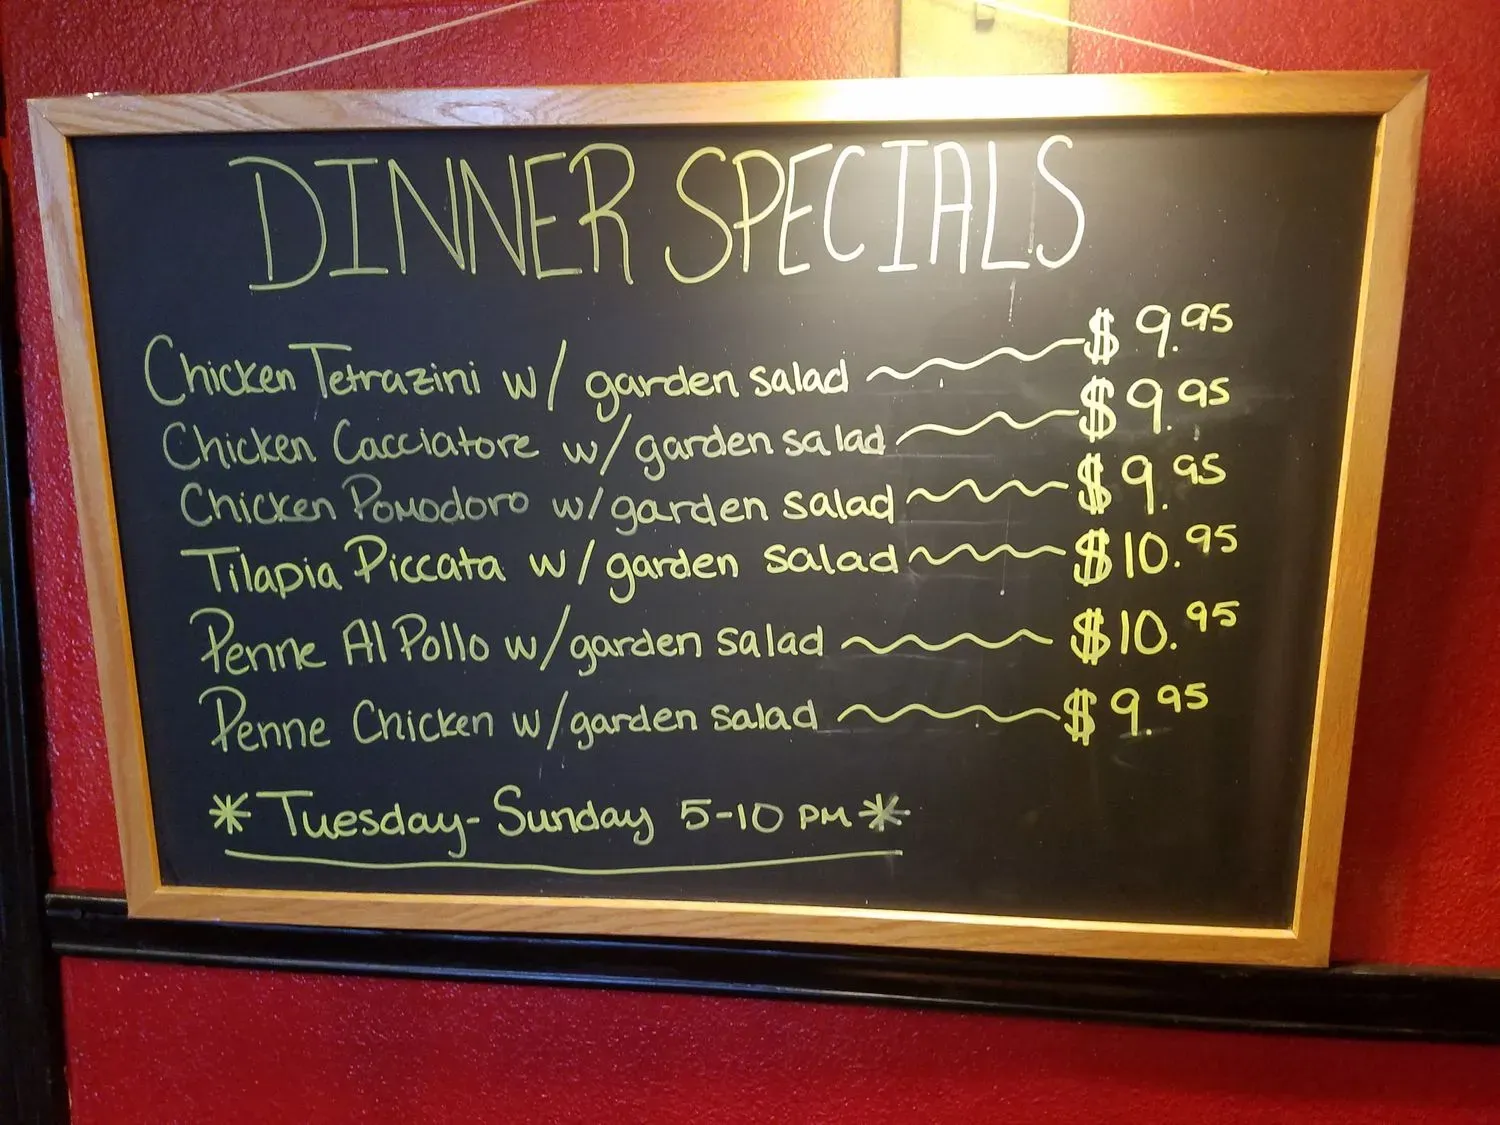 DINNER SPECIALS
Chicken Tetrazini w/ garden salad $9.95
Chicken Cacciatore w/ garden salad $9.95
Chicken Pomodoro w/ garden salad $9.95
Tilapia Piccata w/ garden salad $10.95
Penne Al Pollo w/ garden salad $10.95
Penne Chicken w/ garden salad $9.95
* Tuesday - Sunday 5-10 PM *